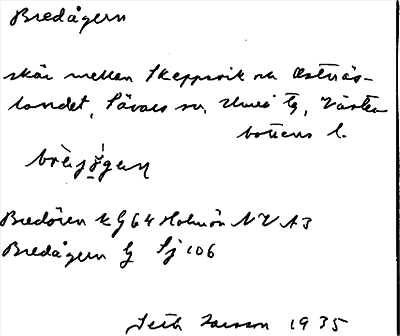 Bredågern
skär mellan Skeppsvik och Ostnäs-
landet, Sävars sn, Umeå tg, Väster
bottens l.
Bredören k G64 Holmön NV A3
Bredågern G Sj 106
Seth Larsson 1935